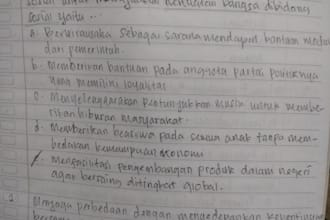 sosial untuk mewujudkan kemajuan bangsa dibidang
sosial yaitu ...
a. Berwirausaha sebagai sarana mendapat bantuan modal
dari pemerintah.
b. Memberikan bantuan pada anggota partai politiknya
memiliki loyalitas
c. Menyelenggarakan pertunjukkan musik untuk membe-
rikan hiburan masyarakat
d. Memberikan beasiswa pada semua anak tanpa mem-
bedakan kemampuan ekonomi
e. Memfasilitasi pengembangan produk dalam negeri
agar bersaing ditingkat global.
Menjaga perbedaan dengan mengedepankan kepentingan